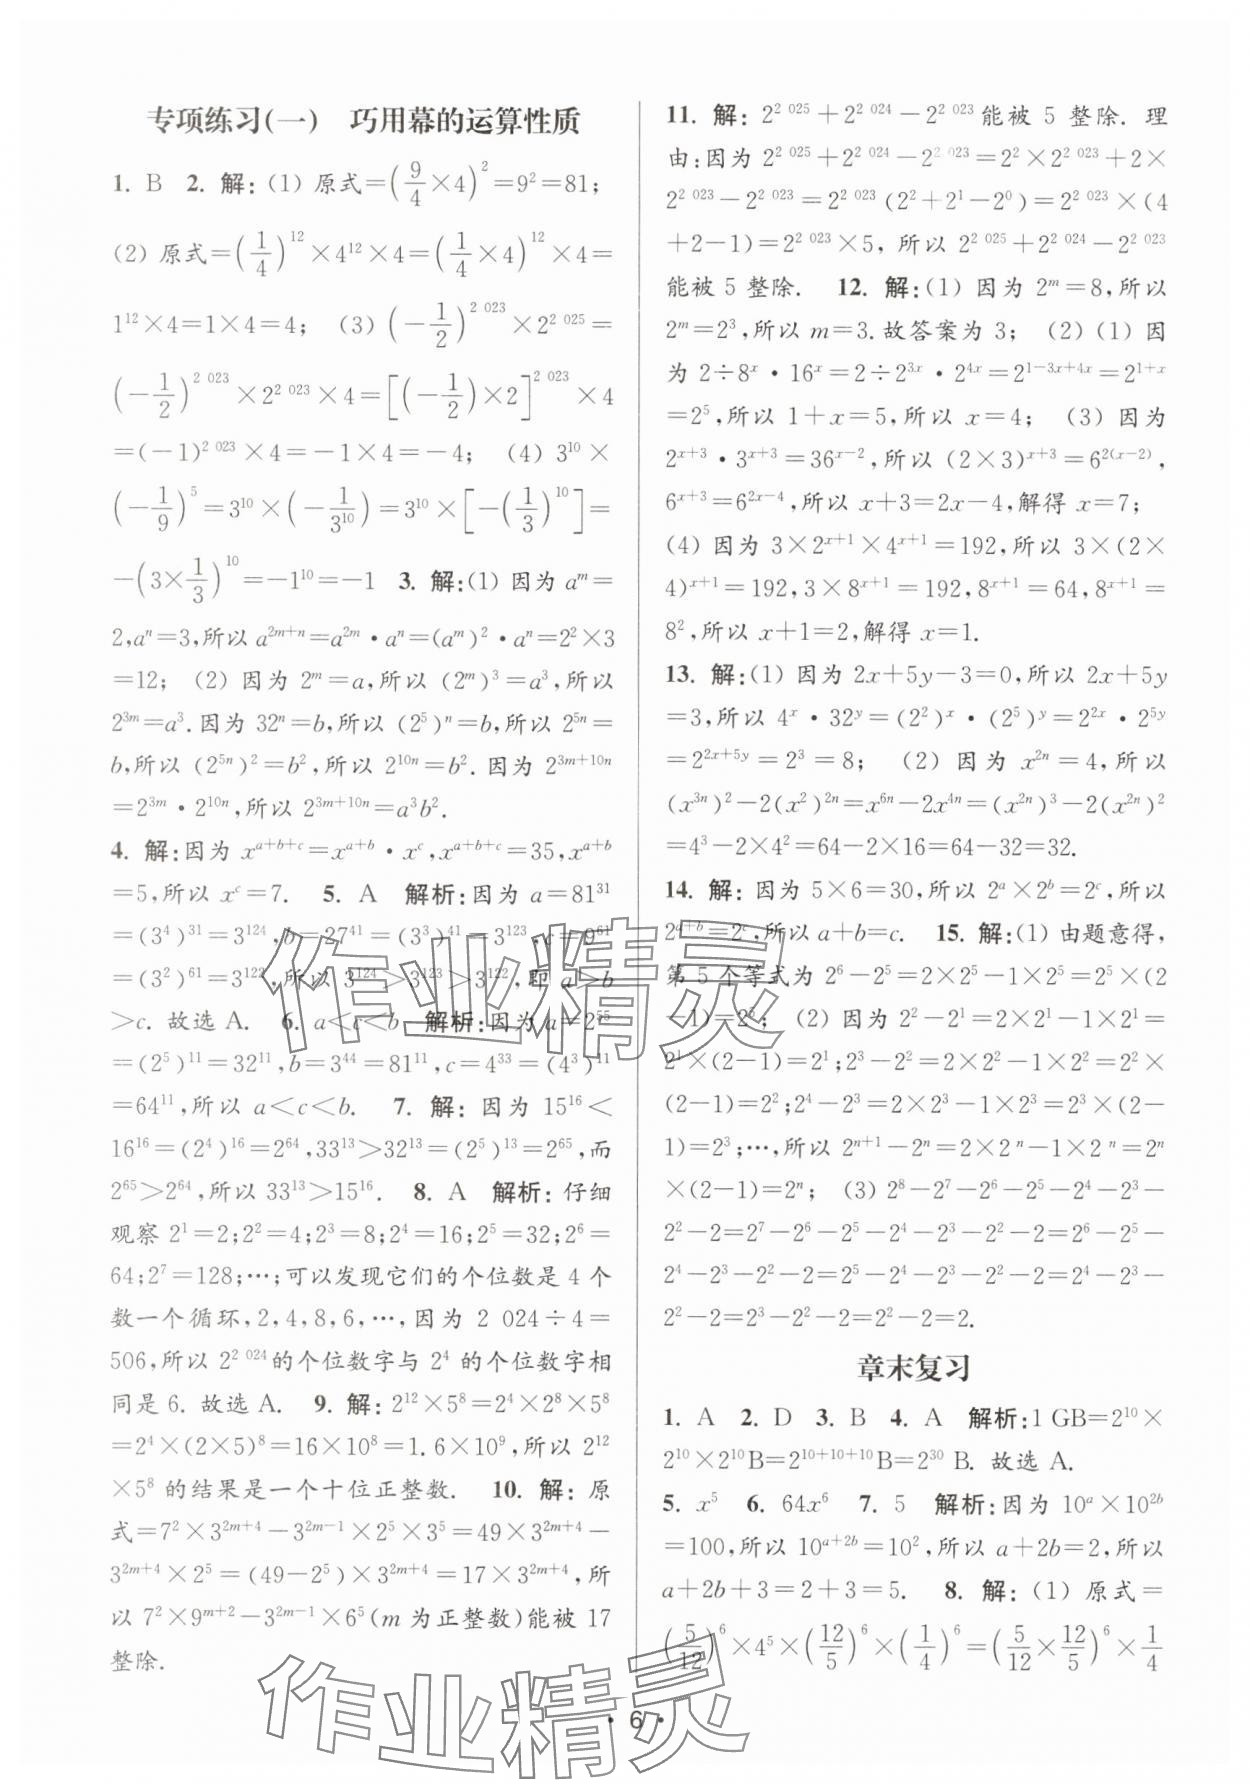 专项练习(一)　巧用幂的运算性质
1. B 2. 解:(1) 原式=(9/4×4)²=9²=81;
(2) 原式=(1/4)¹²×4¹²×4=(1/4×4)¹²×4=
1¹²×4=1×4=4; (3) (-1/2)^{2 023}×2^{2 025}=
(-1/2)^{2 023}×2^{2 023}×4=[(-1/2)×2]^{2 023}×4
=(-1)^{2 023}×4=-1×4=-4; (4) 3¹⁰×
(-1/9)⁵=3¹⁰×(-1/3¹⁰)=3¹⁰×[-(1/3)¹⁰]=
-(3×1/3)¹⁰=-1¹⁰=-1 3. 解:(1) 因为 a^m=
2,a^n=3,所以 a^{2m+n}=a^{2m}·a^n=(a^m)²·a^n=2²×3
=12; (2) 因为 2^m=a,所以 (2^m)³=a³,所以
2^{3m}=a³.因为 32^n=b,所以 (2⁵)^n=b,所以 2^{5n}=
b,所以 (2^{5n})²=b²,所以 2^{10n}=b². 因为 2^{3m+10n}
=2^{3m}·2^{10n},所以 2^{3m+10n}=a³b².
4. 解:因为 x^{a+b+c}=x^{a+b}·x^c,x^{a+b+c}=35,x^{a+b}
=5,所以 x^c=7. 5. A 解析:因为 a=81³¹
=(3⁴)³¹=3¹²⁴,b=27⁴¹=(3³)⁴¹=3¹²³,c=9⁶¹
=(3²)⁶¹=3¹²²,所以 3¹²⁴>3¹²³>3¹²²,即 a>b
>c. 故选 A. 6. a<c<b 解析:因为 a=2⁵⁵
=(2⁵)¹¹=32¹¹,b=3⁴⁴=81¹¹,c=4³³=(4³)¹¹
=64¹¹,所以 a<c<b. 7. 解: 因为 15¹⁶<
16¹⁶=(2⁴)¹⁶=2⁶⁴,33¹³>32¹³=(2⁵)¹³=2⁶⁵,而
2⁶⁵>2⁶⁴,所以 33¹³>15¹⁶. 8. A 解析:仔细
观察 2¹=2;2²=4;2³=8;2⁴=16;2⁵=32;2⁶=
64;2⁷=128;…;可以发现它们的个位数是 4 个
数一个循环,2,4,8,6,…,因为 2 024÷4=
506,所以 2^{2 024}的个位数字与 2⁴ 的个位数字相
同是 6. 故选 A. 9. 解:2¹²×5⁸=2⁴×2⁸×5⁸
=2⁴×(2×5)⁸=16×10⁸=1.6×10⁹,所以 2¹²
×5⁸ 的结果是一个十位正整数. 10. 解: 原
式=7²×3^{2m+4}-3^{2m-1}×2⁵×3⁵=49×3^{2m+4}-
3^{2m+4}×2⁵=(49-2⁵)×3^{2m+4}=17×3^{2m+4},所
以 7²×9^{m+2}-3^{2m-1}×6⁵(m 为正整数)能被 17
整除.
11. 解: 2^{2 025}+2^{2 024}-2^{2 023}能被 5 整除. 理
由:因为 2^{2 025}+2^{2 024}-2^{2 023}=2²×2^{2 023}+2×
2^{2 023}-2^{2 023}=2^{2 023}(2²+2¹-2⁰)=2^{2 023}×(4
+2-1)=2^{2 023}×5, 所以 2^{2 025}+2^{2 024}-2^{2 023}
能被 5 整除. 12. 解:(1) 因为 2^m=8,所以
2^m=2³,所以 m=3.故答案为 3; (2) (1) 因
为 2÷8^x·16^x=2÷2^{3x}·2^{4x}=2^{1-3x+4x}=2^{1+x}
=2⁵,所以 1+x=5,所以 x=4; (3) 因为
2^{x+3}·3^{x+3}=36^{x-2},所以 (2×3)^{x+3}=6^{2(x-2)},
6^{x+3}=6^{2x-4},所以 x+3=2x-4,解得 x=7;
(4) 因为 3×2^{x+1}×4^{x+1}=192,所以 3×(2×
4)^{x+1}=192,3×8^{x+1}=192,8^{x+1}=64,8^{x+1}=
8²,所以 x+1=2,解得 x=1.
13. 解:(1) 因为 2x+5y-3=0,所以 2x+5y
=3,所以 4^x·32^y=(2²)^x·(2⁵)^y=2^{2x}·2^{5y}
=2^{2x+5y}=2³=8; (2) 因为 x^{2n}=4,所以
(x^{3n})²-2(x²)^{2n}=x^{6n}-2x^{4n}=(x^{2n})³-2(x^{2n})²
=4³-2×4²=64-2×16=64-32=32.
14. 解: 因为 5×6=30,所以 2^a×2^b=2^c,所以
2^{a+b}=2^c,所以 a+b=c. 15. 解:(1) 由题意得,
第 5 个等式为 2⁶-2⁵=2×2⁵-1×2⁵=2⁵×(2
-1)=2⁵; (2) 因为 2²-2¹=2×2¹-1×2¹=
2¹×(2-1)=2¹;2³-2²=2×2²-1×2²=2²×
(2-1)=2²;2⁴-2³=2×2³-1×2³=2³×(2-
1)=2³;…,所以 2^{n+1}-2^n=2×2^n-1×2^n=2^n
×(2-1)=2^n; (3) 2⁸-2⁷-2⁶-2⁵-2⁴-2³-
2²-2=2⁷-2⁶-2⁵-2⁴-2³-2²-2=2⁶-2⁵-
2⁴-2³-2²-2=2⁵-2⁴-2³-2²-2=2⁴-2³-
2²-2=2³-2²-2=2²-2=2.
章末复习
1. A 2. D 3. B 4. A 解析:1 GB=2¹⁰×
2¹⁰×2¹⁰B=2^{10+10+10}B=2³⁰ B. 故选 A.
5. x⁵ 6. 64x⁶ 7. 5 解析:因为 10^a×10^{2b}
=100,所以 10^{a+2b}=10²,所以 a+2b=2,所以
a+2b+3=2+3=5. 8. 解:(1) 原式=
(5/12)⁶×4⁵×(12/5)⁶×(1/4)⁶=(5/12×12/5)⁶×1/4
·6·
作业精灵
作业精灵